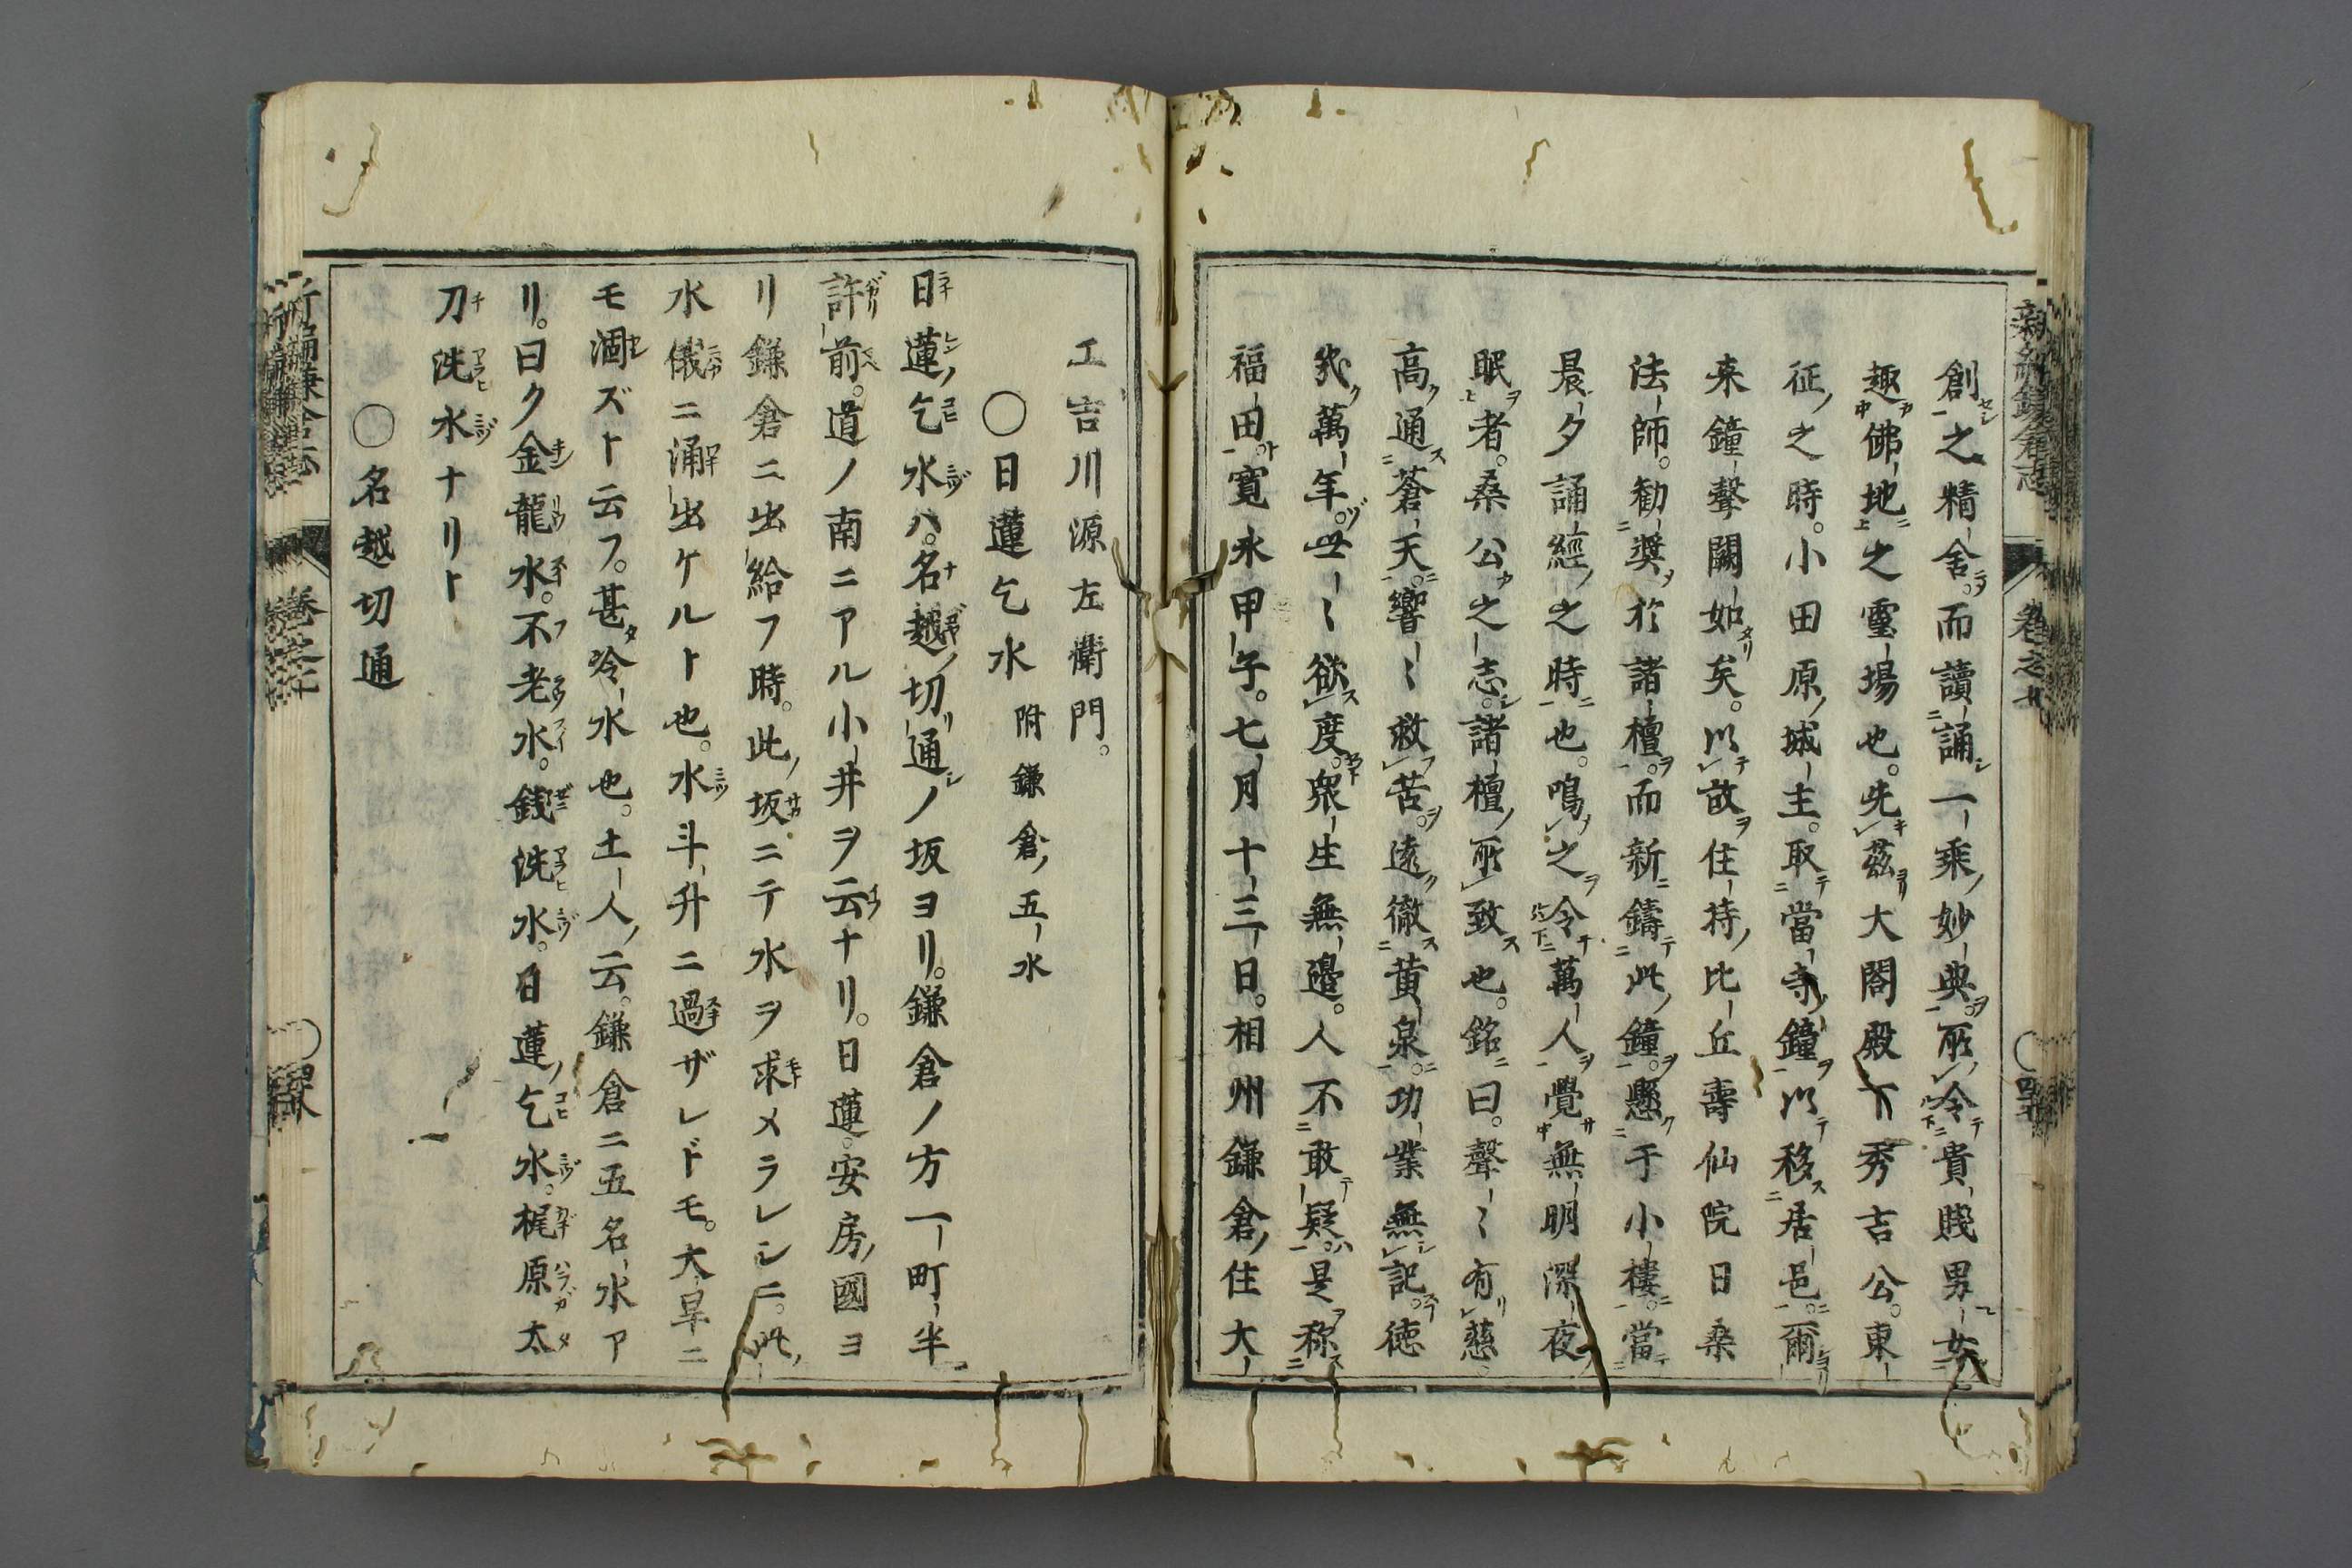 創之精舍。而讀誦一乘妙典。所令貴賤男女
趣佛地之靈場也。先茲大閤殿下秀吉公。東
征之時。小田原城主。取當寺鐘以移居邑。爾
来鐘聲闕如矣。以故住持比丘壽仙院日桑
法師。勸奬於諸檀。而新鑄此鐘。懸于小樓。當
晨夕誦經之時也。鳴之令萬人覺無明深夜
眠者。桑公之志。諸檀所致也。銘曰。聲〻有慈
高通蒼天。響〻救苦。遠徹黄泉。功業無記。徳
幾萬年。世〻欲度。衆生無邊。人不敢疑。是稱
福田。寛永甲子。七月十三日。相州鎌倉住大
工吉川源左衞門。
○日蓮乞水 附鎌倉五水
日蓮乞水ハ。名越切通ノ坂ヨリ。鎌倉ノ方一町半
許前。道ノ南ニアル小井ヲ云ナリ。日蓮。安房國ヨ
リ鎌倉ニ出給フ時。此坂ニテ水ヲ求メラレシニ。此
水俄ニ涌出ケルト也。水斗升ニ過ザレドモ。大旱ニ
モ涸ズト云フ。甚冷水也。土人云。鎌倉ニ五名水ア
リ。曰ク金龍水。不老水。銭洗水。日蓮乞水。梶原太
刀洗水ナリト
○名越切通